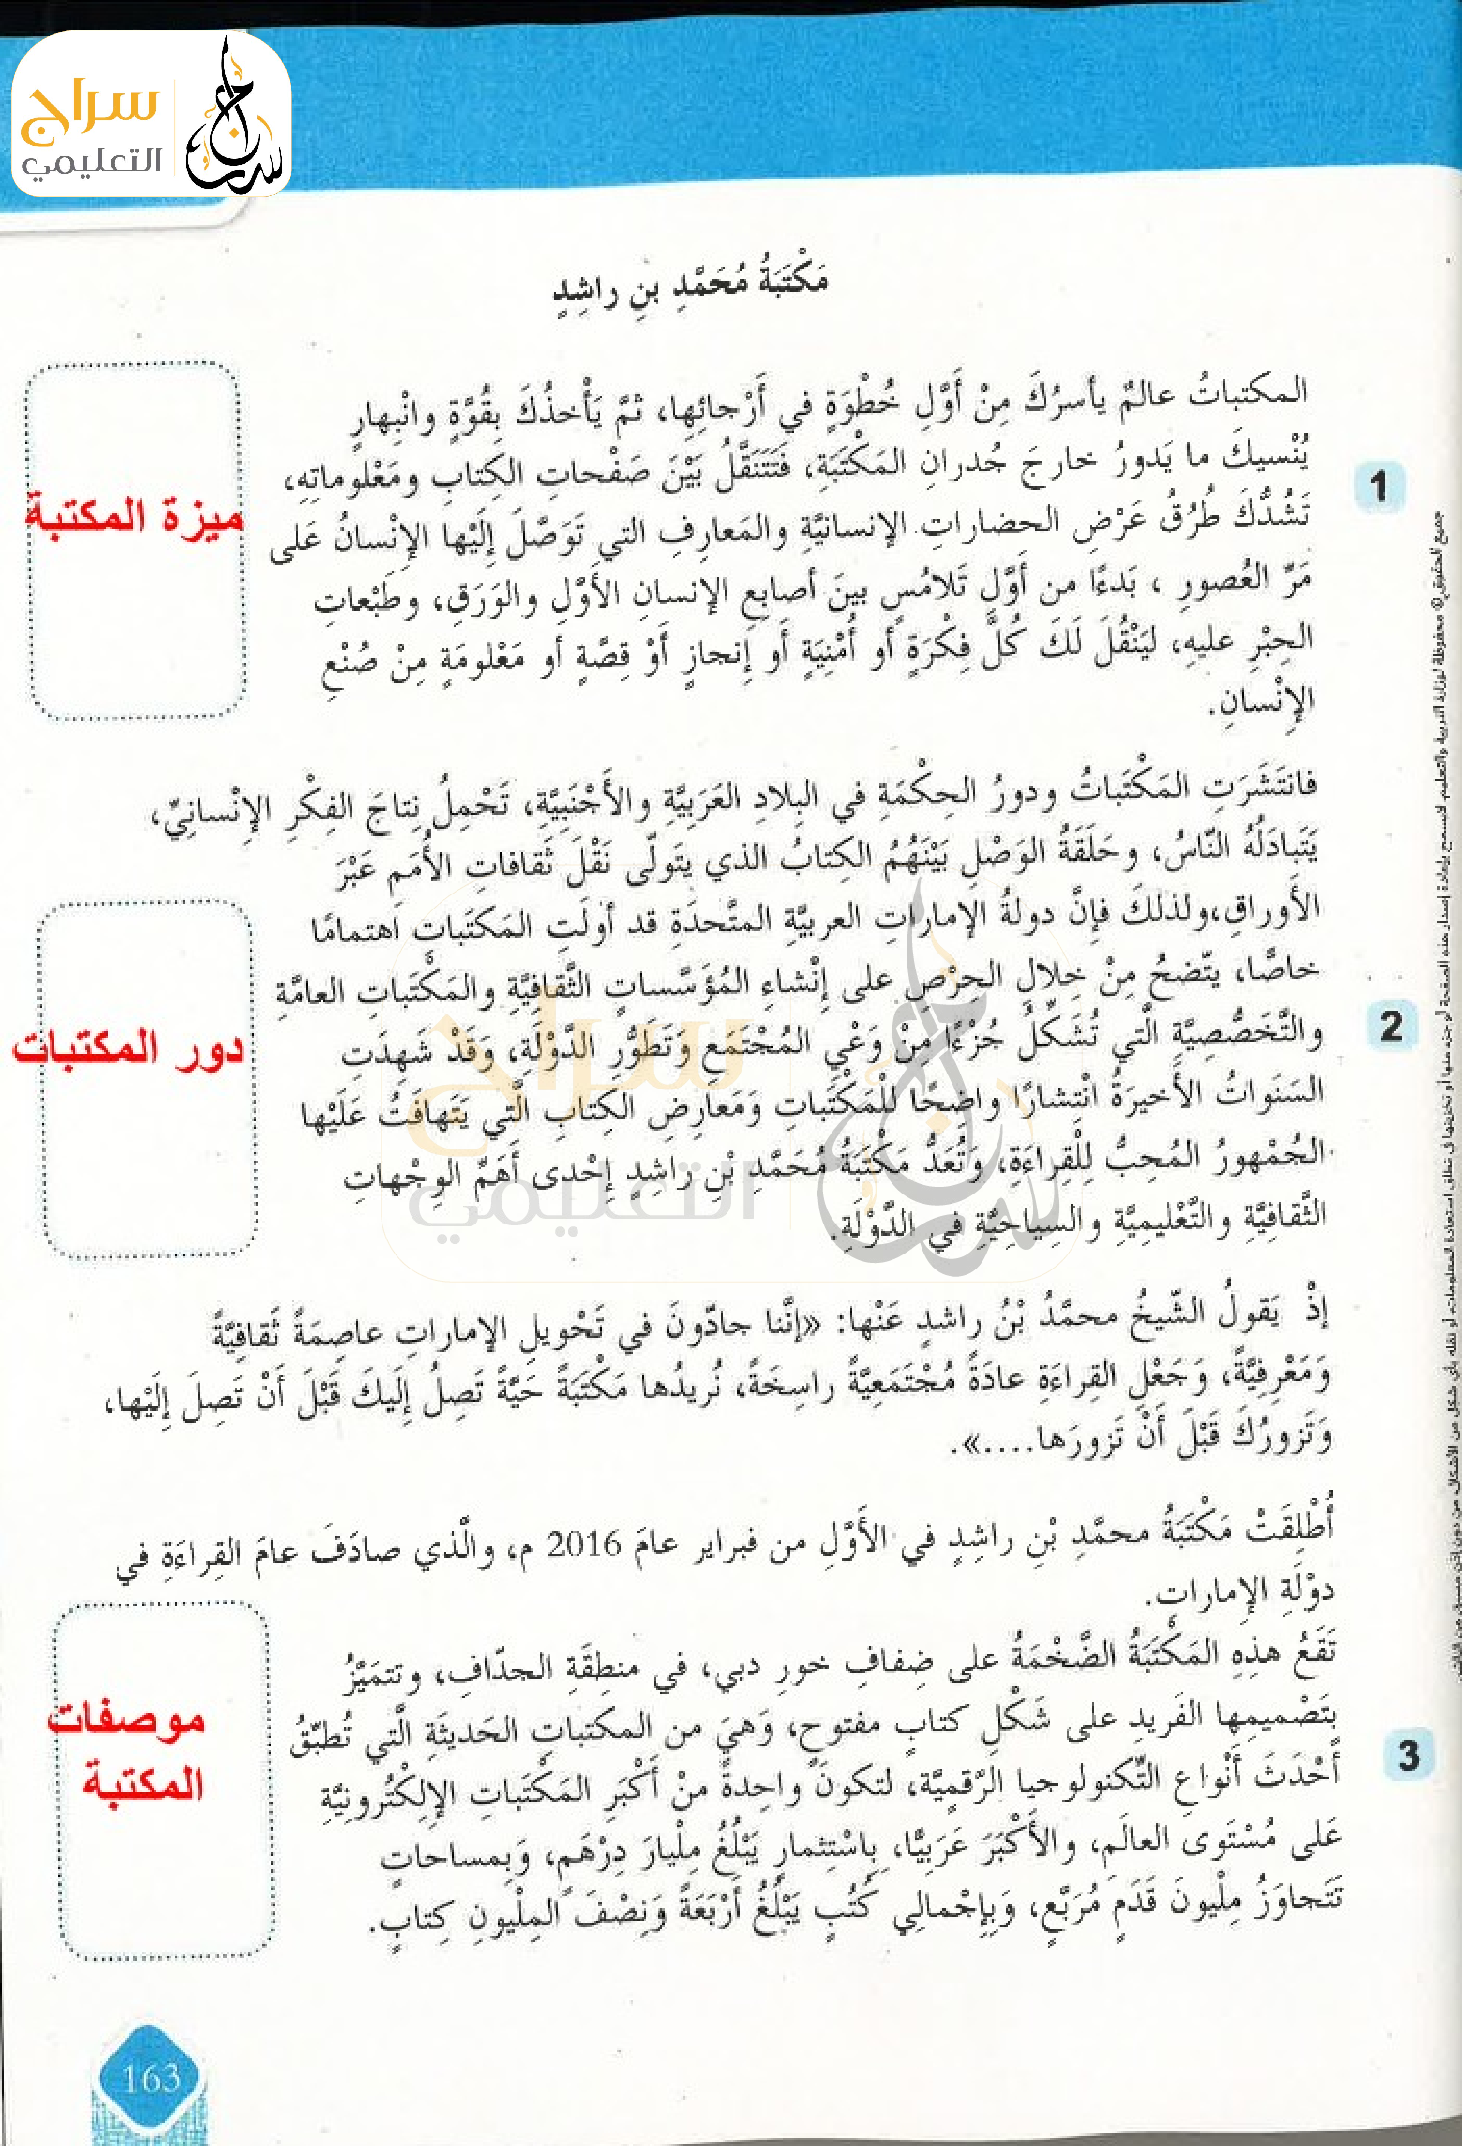 سراج
التعليمي
مَكْتَبَةُ مُحَمَّدِ بنِ راشِدٍ
المكتباتُ عالمٌ يأسرُكَ مِنْ أَوَّلِ خُطْوَةٍ في أَرْجائِها، ثمَّ يَأْخذُكَ بِقُوَّةٍ وانْبِهارٍ
يُنْسيكَ ما يَدورُ خارجَ جُدرانِ المَكْتَبَةِ، فَتَتَنَقَّلُ بَيْنَ صَفْحاتِ الكِتابِ ومَعْلوماتِهِ،
1
تَشُدُّكَ طُرُقُ عَرْضِ الحضاراتِ الإنسانيَّةِ والمَعارِفِ التي تَوَصَّلَ إِلَيْها الإنْسانُ عَلى
ميزة المكتبة
مَرِّ العُصورِ ، بَدءًا من أوَّلِ تَلامُسٍ بينَ أصابِعِ الإنسانِ الأَوَّلِ والوَرَقِ، وطَبْعاتِ
الحِبْرِ عليهِ، ليَنْقُلَ لَكَ كُلَّ فِكْرَةٍ أو أُمْنِيَةٍ أو إنجازٍ أوْ قِصَّةٍ أو مَعْلومَةٍ مِنْ صُنْعِ
الإنْسانِ.
فانتَشَرَتِ المَكْتَباتُ ودورُ الحِكْمَةِ في البِلادِ العَرَبِيَّةِ والأَجْنَبِيَّةِ، تَحْمِلُ نِتاجَ الفِكْرِ الإنْسانِيِّ،
يَتَبادَلُهُ النّاسُ، وحَلَقَةُ الوَصْلِ بَيْنَهُمُ الكِتابُ الذي يتَولّى نَقْلَ ثَقافاتِ الأُمَمِ عَبْرَ
الأَوراقِ،ولذلكَ فإنَّ دولةَ الإماراتِ العربيَّةِ المتَّحدَةِ قد أولَتِ المَكتَباتِ اهتمامًا
خاصًّا، يتّضحُ مِنْ خِلالِ الحِرْصِ على إنْشاءِ المُؤَسَّساتِ الثَّقافِيَّةِ والمَكْتَباتِ العامَّةِ
2
والتَّخَصُّصِيَّةِ الَّتي تُشَكِّلُ جُزْءًا مِنْ وَعْيِ المُجْتَمَعِ وَتَطَوُّرِ الدَّوْلَةِ، وَقَدْ شَهِدَتِ
دور المكتبات
السَنَواتُ الأَخيرَةُ انْتِشارًا واضِحًا لِلْمَكْتَباتِ وَمَعارِضِ الكِتابِ الَّتي يَتَهافَتُ عَلَيْها
الجُمْهورُ المُحِبُّ لِلْقِراءَةِ، وَتُعَدُّ مَكْتَبَةُ مُحَمَّدِ بْنِ راشِدٍ إحْدى أَهَمِّ الوِجْهاتِ
الثَّقافِيَّةِ والتَّعْليمِيَّةِ والسِياحِيَّةِ في الدَّوْلَةِ.
إذْ يَقولُ الشّيخُ محمَّدُ بْنُ راشدٍ عَنْها: «إنَّنا جادّونَ في تَحْويلِ الإماراتِ عاصِمَةً ثَقافِيَّةً
وَمَعْرِفِيَّةً، وَجَعْلِ القِراءَةِ عادَةً مُجْتَمَعِيَّةً راسِخَةً، نُريدُها مَكْتَبَةً حَيَّةً تَصِلُ إلَيكَ قَبْلَ أَنْ تَصِلَ إلَيْها،
وَتَزورُكَ قَبْلَ أَنْ تَزورَها....».
أُطْلِقَتْ مَكْتَبَةُ محمَّدِ بْنِ راشِدٍ في الأوَّلِ من فبراير عامَ 2016 م، والَّذي صادَفَ عامَ القِراءَةِ في
دوْلَةِ الإماراتِ.
تَقَعُ هذِهِ المَكْتَبَةُ الضَّخْمَةُ على ضِفافِ خورِ دبي، في منطِقَةِ الجدّافِ، وتتميَّزُ
بِتَصْميمِها الفَريدِ على شَكْلِ كتابٍ مفتوحٍ، وَهيَ من المكتباتِ الحَديثَةِ الَّتي تُطبِّقُ
3
أَحْدَثَ أَنْواعِ التِّكنولوجيا الرَّقمِيَّة، لتكونَ واحِدةً منْ أَكْبَرِ المَكْتَباتِ الإلِكْتُرونِيَّةِ
موصفات
المكتبة
عَلى مُسْتَوى العالَمِ، والأَكْبَرَ عَرَبِيًّا، بِاسْتِثمارٍ يَبْلُغُ مِلْيارَ دِرْهَمٍ، وَبِمساحاتٍ
تَتَجاوَزُ مِلْيونَ قَدَمٍ مُرَبَّعٍ، وَبِإجْمالِي كُتُبٍ يَبْلُغُ أَرْبَعَةً وَنِصْفَ المِلْيونِ كِتابٍ.
163